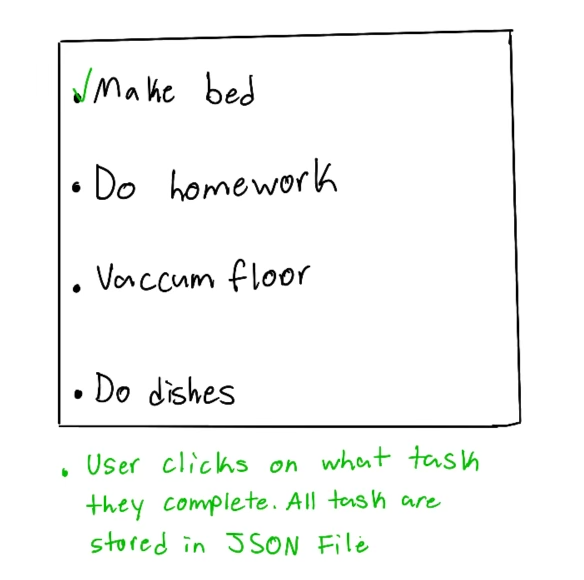 Make bed
• Do homework
• Vaccum floor
• Do dishes
• User clicks on what task
they complete. All task are
stored in JSON File